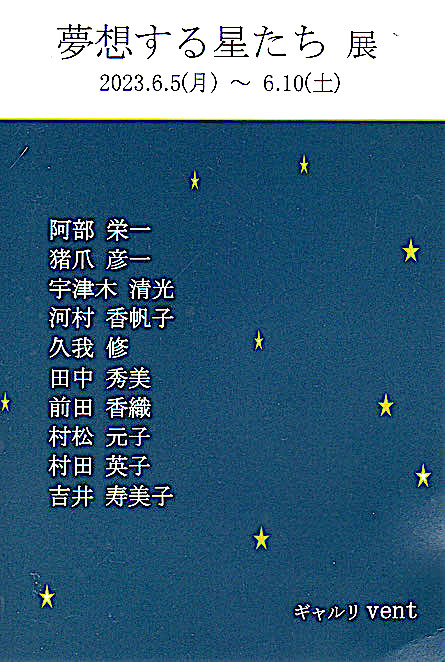 夢想する星たち 展
2023.6.5(月) ～ 6.10(土)
阿部 栄一
猪爪 彦一
宇津木 清光
河村 香帆子
久我 修
田中 秀美
前田 香織
村松 元子
村田 英子
吉井 寿美子
ギャルリ vent